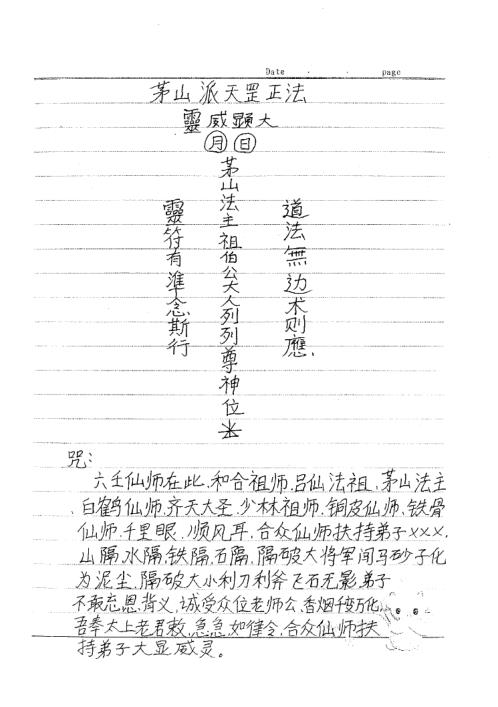 Date . . page
茅山派天罡正法
靈威顕大
月 日
道法無边术则應.
茅山法主祖伯公大人列列尊神位
靈符有準念斯行
咒:
六壬仙师在此.和合祖师.吕仙法祖.茅山法主
.白鹤仙师.齐天大圣.少林祖师.铜皮仙师.铁骨
仙师.千里眼.顺风耳.合众仙师扶持弟子×××.
山隔.水隔.铁隔.石隔.隔破大将军闾马砂子化
为泥尘.隔破大小利刀利斧飞石无影.弟子
不敢忘恩.背义.诚受众位老师公.香烟千变万化.
吾奉太上老君敕.急急.如律令.合众仙师扶
持弟子大显威灵。